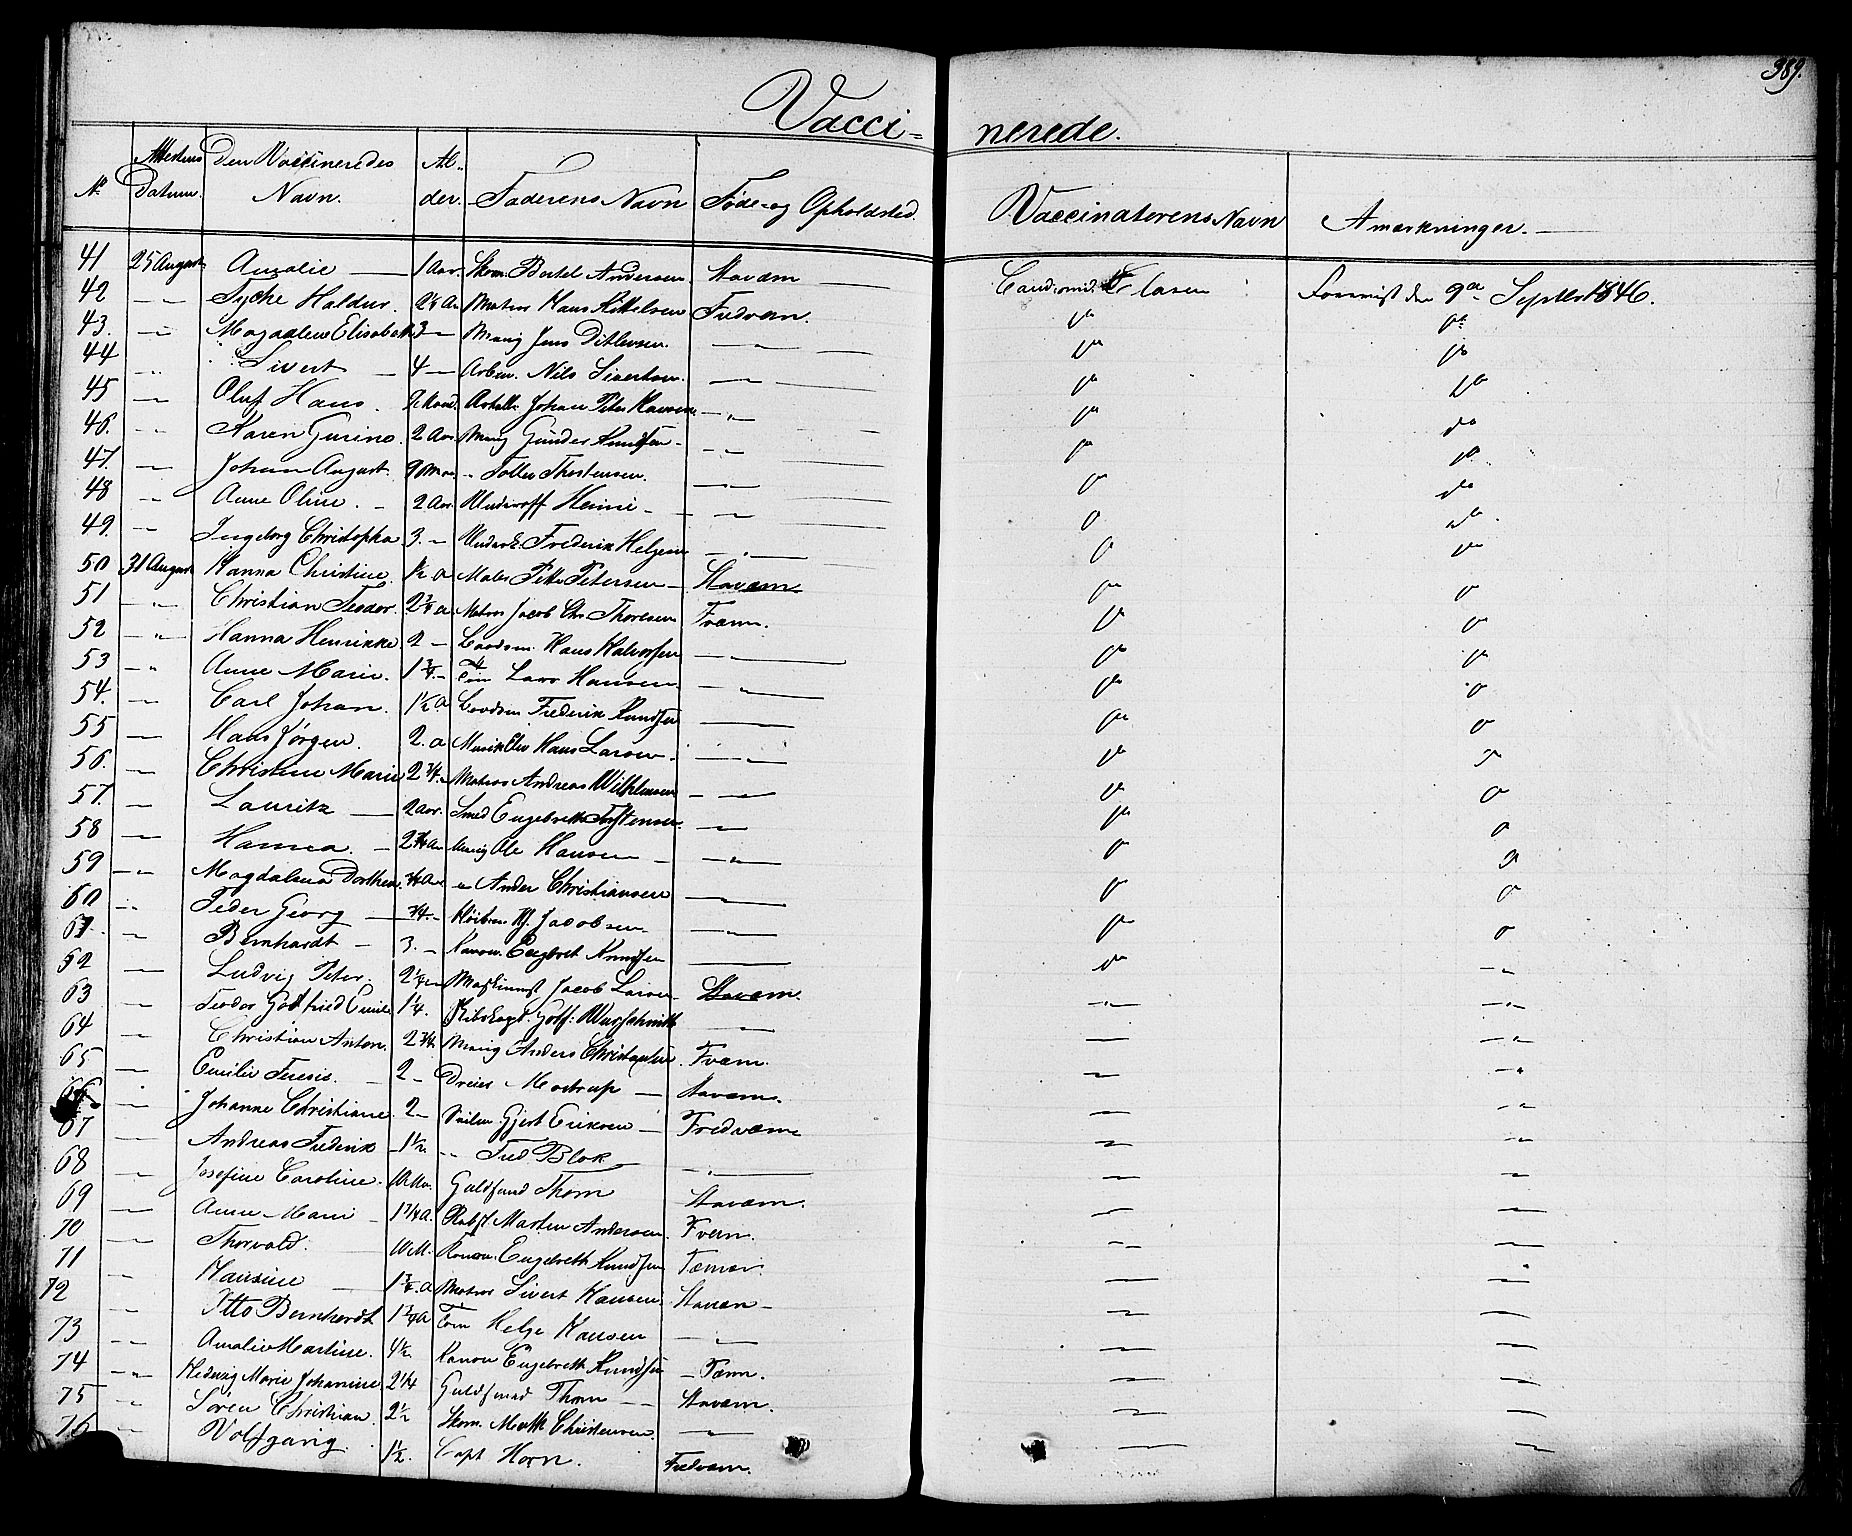 389.
Vacci= nerede.
No Attestens Datum. Den Vaccineredes Navn. Al=der. Faderens Navn Føde- og Opholdsted. Vaccinatorens Navn Anmærkninger.
41 25 August Amalie 1 Aar. Skom. Bertel Andersen Staværn Cand. med. Clasen Foreviist den 9de Septbr 1846.
42 Tycke Haldur Matros Hans Kittelsen Fredværn. do do
43. Magdalene Elisabeth 3 Marig Jens Ditlevsen. do do
44 Sivert 4 Arbm. Nils Sivertsen. do do
45 Oluf Hans. 9 Maan. Johan Peter Hansen do do
46. Karen Gurine. 2 Aar. Marig Gunder Knudsen do do
47. Johan August. 9 Maan. Tollev Thostensen. do do
48 Anne Oline. 2 Aar. Underoff Henni do do
49. Ingeborg Christopha 3. Underk. Frederik Helgesen do do
50 31 August Hanna Christine. 1½ a Maler Petersen Staværn do do
51 Christian Teodor. 2¾ a Matros Jacob Chr. Thoresen Fværn. do do
52 Hanna Henrikke. 2 Hans Halvorsen do do
53 Anne Marie. 1¾ Tøm Lars Hansen do do
54. Carl Johan. 1½ a Frederik Knudsen do do
55 Hans Jørgen. 2. a Hans Larsen do do
56. Christine Marie 2¾ Matros Andreas Wilhelmsen do do
57. Lauritz 2 Aar. Smed Engebreth Torstensen. do do
58 Hanna. 2¾ Aar Marig Ole Hansen do do
59 Magdalena Dorthea ¾ Aar Anders Christiansen do do
60 Peder Georg ¾ Jacobsen do do
61. Bernhardt 3. Kanon. Engbret Knudsen do
62 Ludvig Peter. 2¼ Maskinmst Jacob Larsen Staværn.
63 Teodor Gotfried Emil 1¼. Skibskapt. Gotf: Wurschmidt
64 Christian Anton. 2¾. Marig Anders Christensen Fværn.
65 Emilie Teresie. 2 Dreier Mostrup Staværn.
66 Johanne Christiane. 2 Gjert Eriksen Fredværn
67 Andreas Frederik 1½. Fred Blok
68 Josefine Caroline. 10 Guldsmed Thorn Staværn.
69 Anne Marie 1¼ a. Marten Andersen. Fværn.
70 Thorvald. 10 M. Kanon. Engebreth Knudsen
71 Hansine 1¾ a Matros Sivert Hansen. Stavæn
72 Otto Bernhardt 1¾ a Tøm Helge Hansen
73 Amalie Martine. 4½ Kanon Engebreth Knudsen
74 Hedevig Marie Johannine 2¼ Guldsmed Thorn Stavæn.
75 Søren Christian. 2½ Skom. Math Christensen.
76 Volfgang. 1½. Capt Horn. Fredværn.